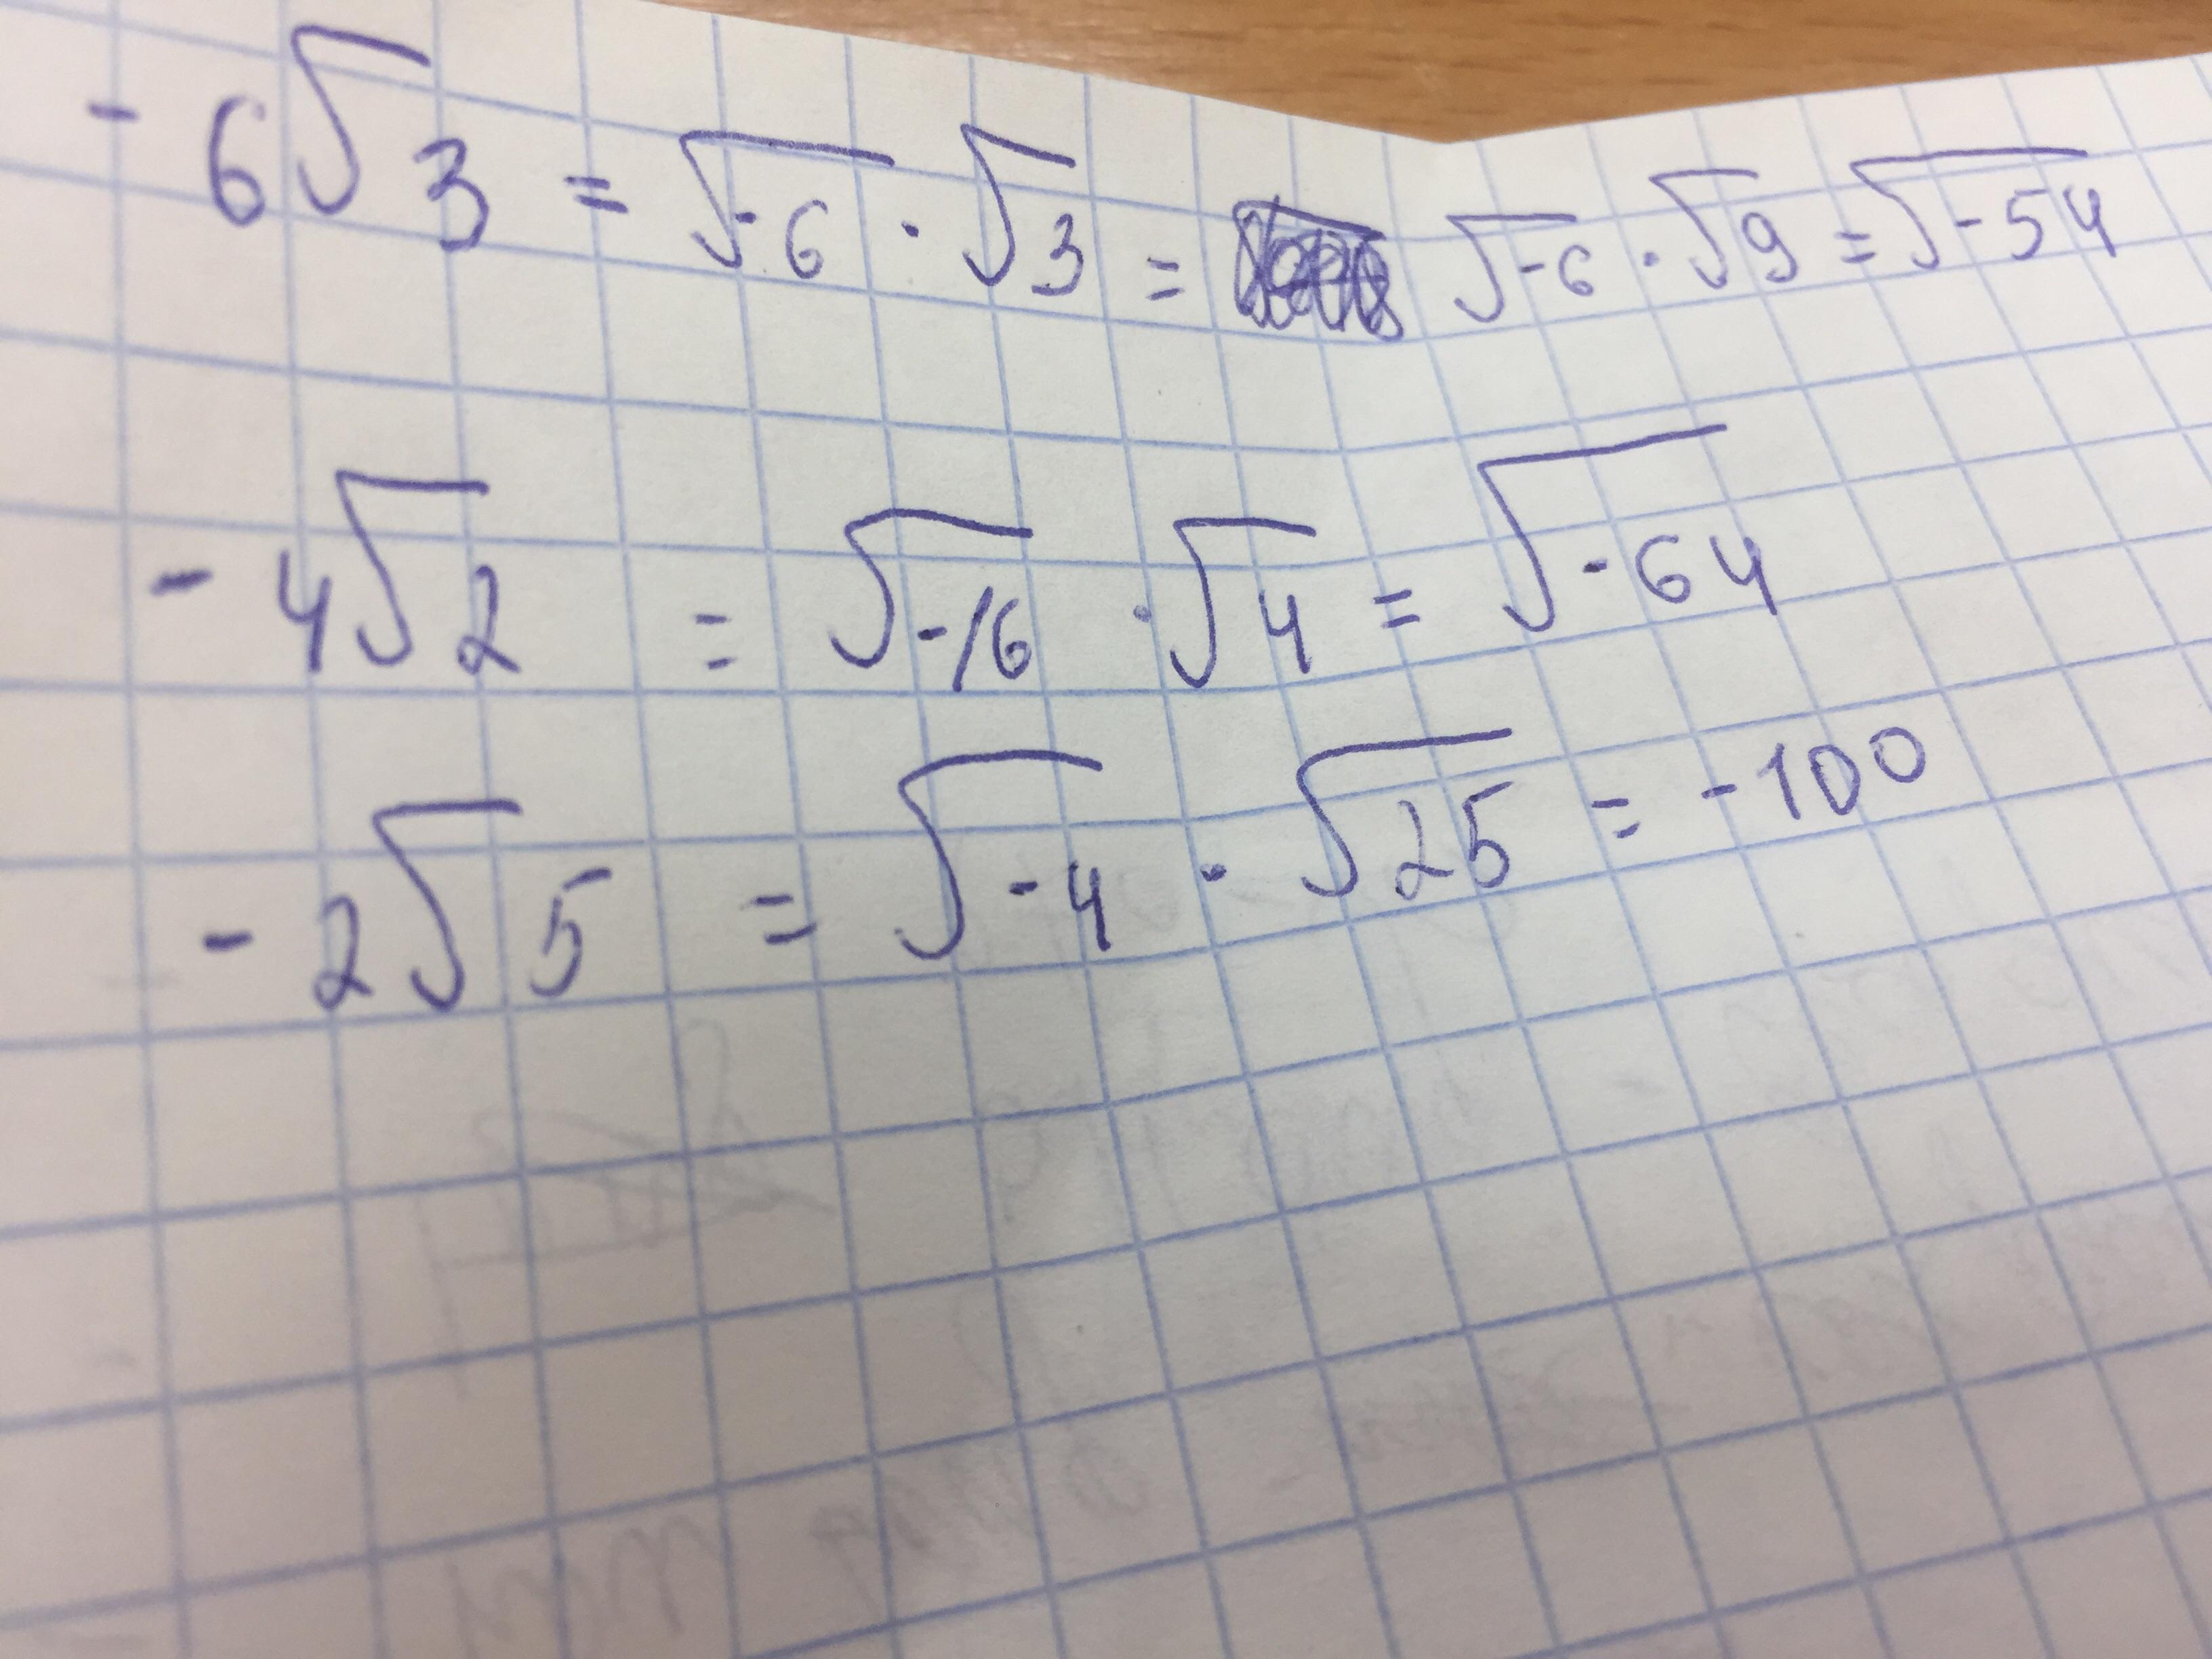 - 6√3 = √-6 · √3 = √-6 · √9 = √-54
- 4√2 = √-16 · √4 = √-64
- 2√5 = √-4 · √25 = -100